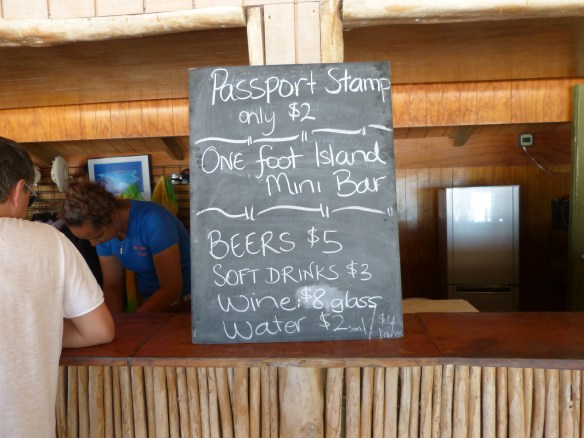 Passport Stamp
only $2
One foot Island
Mini Bar
BEERS $5
SOFT DRINKS $3
Wine: $8 glass
Water $2 sml / $4 large